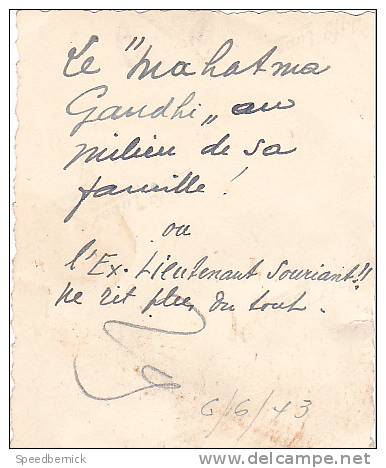 Le "Mahatma
Gandhi„ au
milieu de sa
famille !
ou
l'Ex. Lieutenant Souriant !!
ne rit plus du tout.
6/6/43
Speedbernick
www.delcampe.net